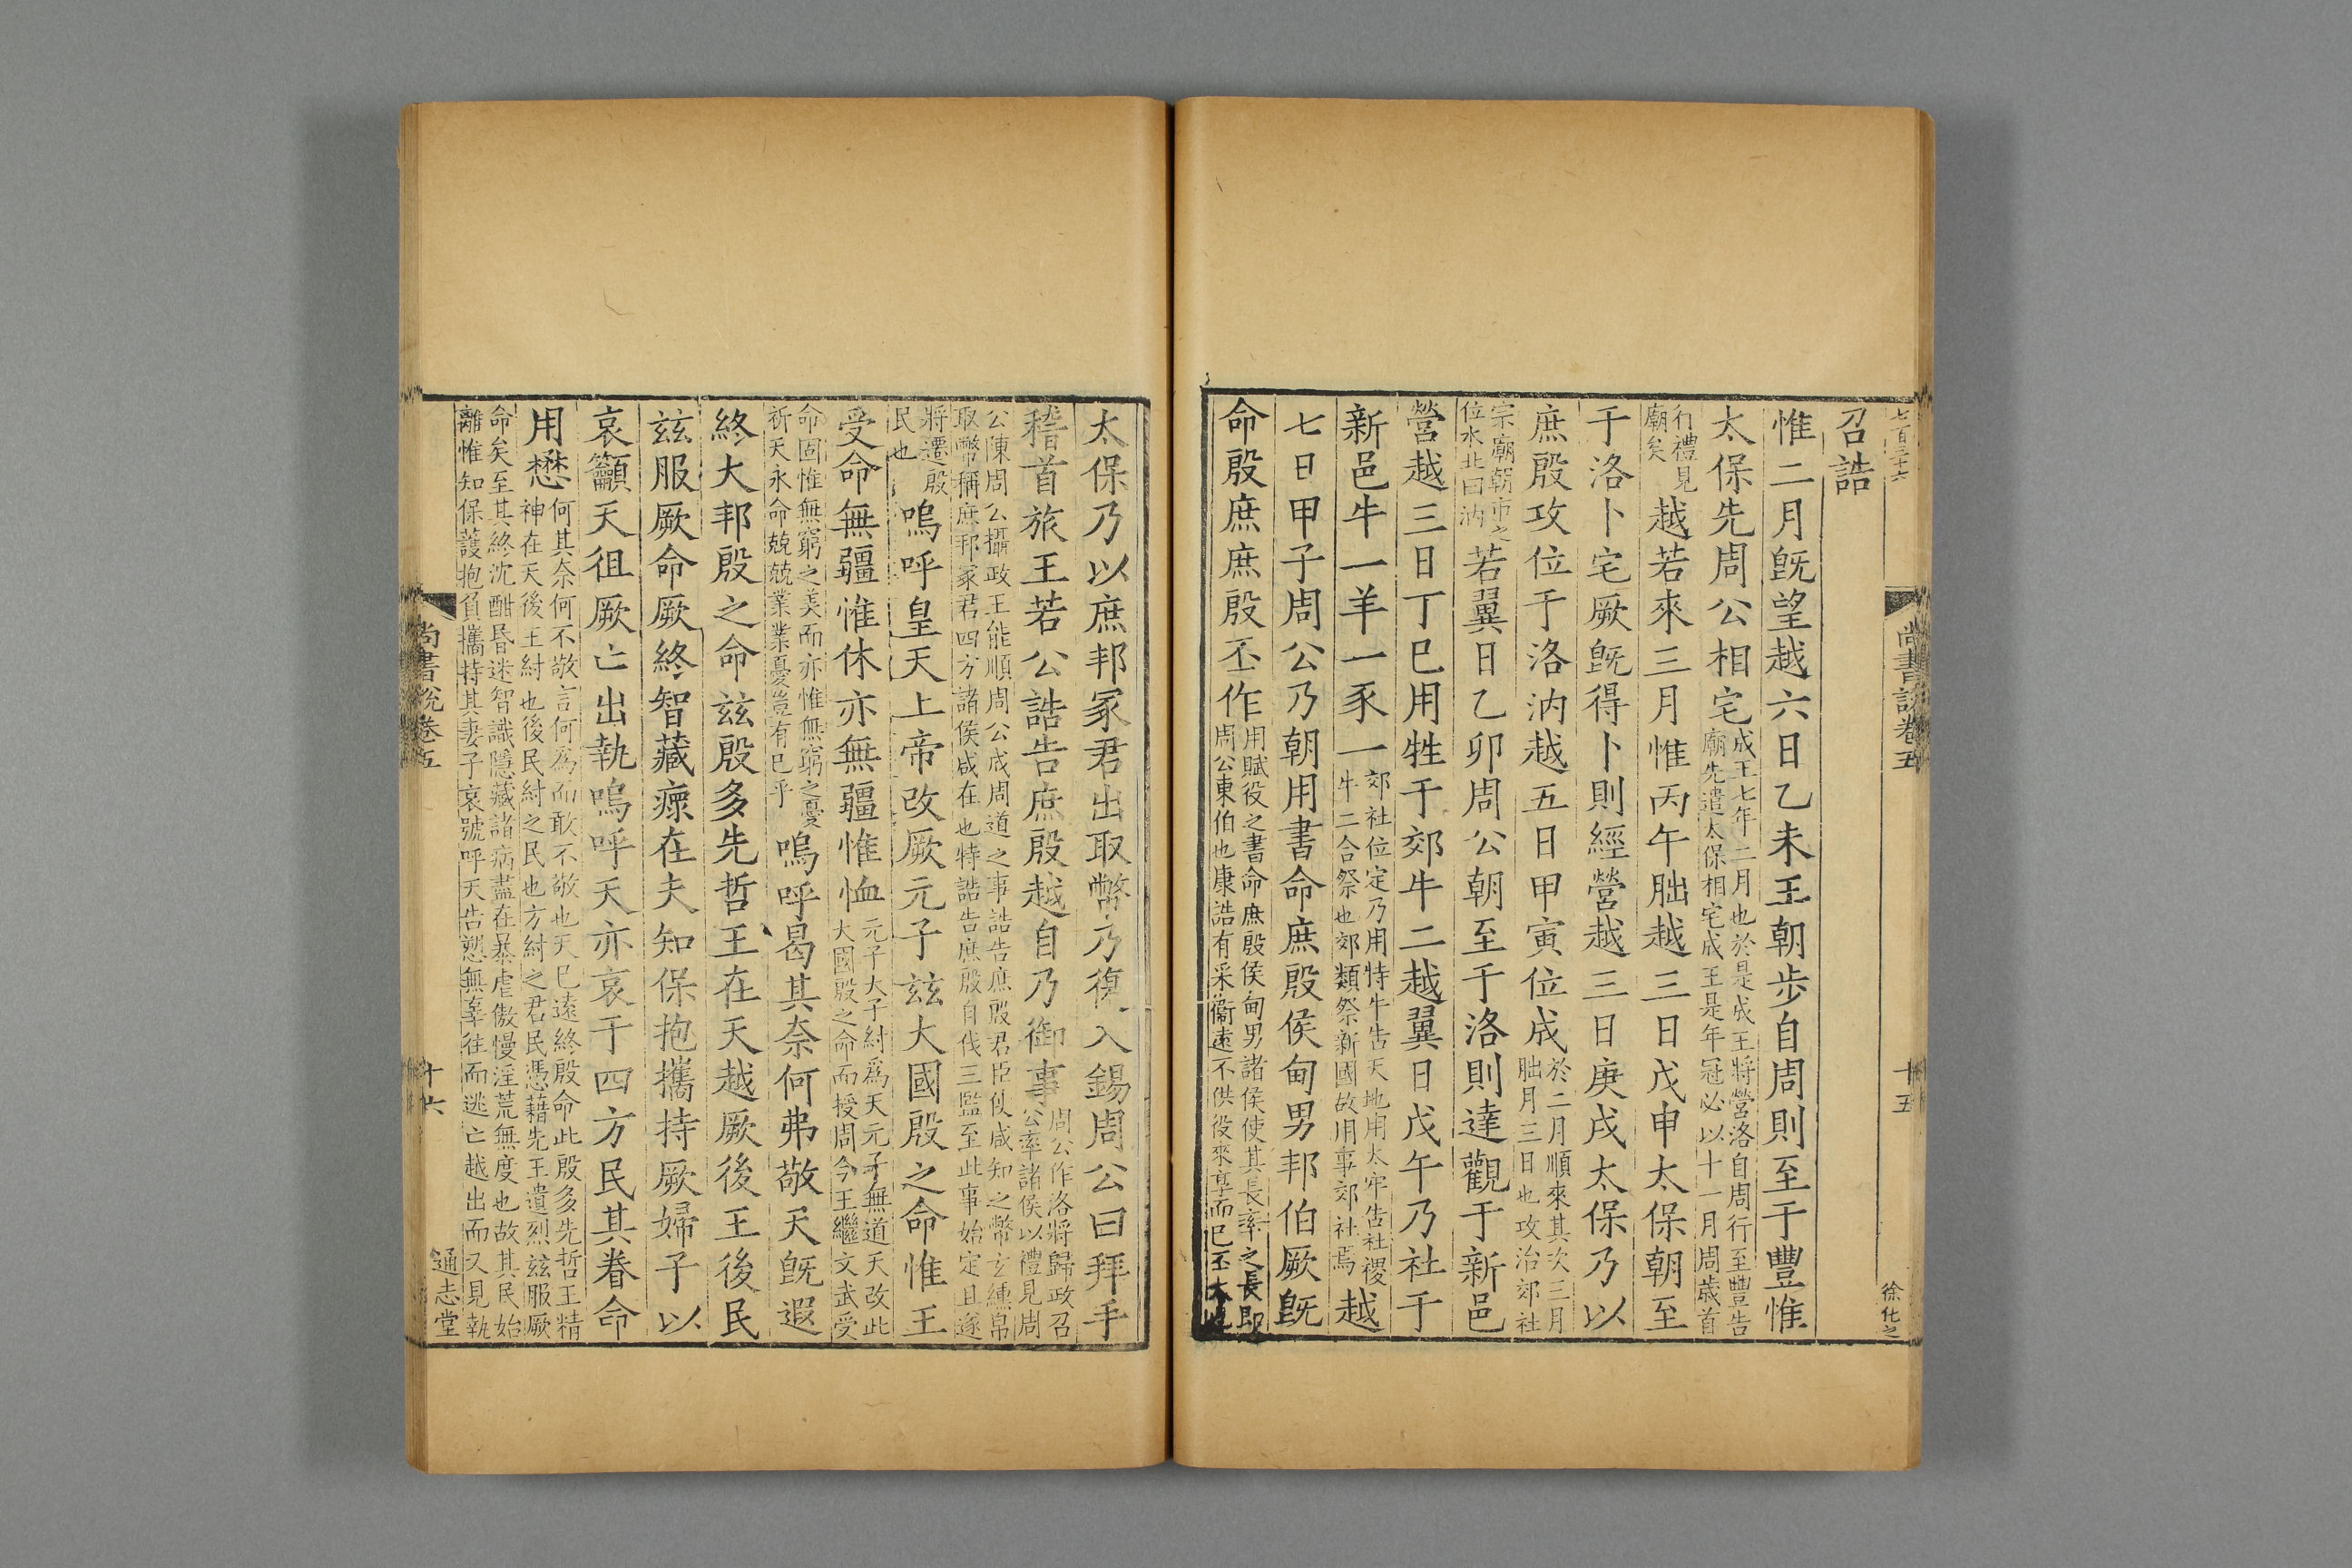 七百三十六
尚書說卷五
十五
徐化之
召誥
惟二月旣望越六日乙未王朝步自周則至于豐惟
太保先周公相宅成王七年二月也於是成王將營洛自周行至豐告廟先遣太保相宅成王是年冠必以十一月周歲首
行禮見廟矣越若來三月惟丙午朏越三日戊申太保朝至
于洛卜宅厥旣得卜則經營越三日庚戌太保乃以
庶殷攻位于洛汭越五日甲寅位成於二月順來其次三月朏月三日也攻治郊社
宗廟朝市之位水北曰汭若翼日乙卯周公朝至于洛則達觀于新邑
營越三日丁巳用牲于郊牛二越翼日戊午乃社于
新邑牛一羊一豕一郊社位定乃用特牛告天地用太牢告社稷牛二合祭也郊類祭新國故用事郊社焉越
七日甲子周公乃朝用書命庶殷侯甸男邦伯厥旣
命殷庶庶殷丕作用賦役之書命庶殷侯甸男諸侯使其長率之長即周公東伯也康誥有采衞遠不供役來享而已丕大
太保乃以庶邦冢君出取幣乃復入錫周公曰拜手
稽首旅王若公誥告庶殷越自乃御事周公作洛將歸政召公率諸侯以禮見周
公陳周公攝政王能順周公成周道之事誥告庶殷君臣使咸知之幣玄纁帛取幣稱庶邦冢君四方諸侯咸在也特誥告庶殷自伐三監至此事始定且遂
將遷殷民也嗚呼皇天上帝改厥元子茲大國殷之命惟王
受命無疆惟休亦無疆惟恤元子大子紂爲天元子無道天改此大國殷之命而授周今王繼文武受
命固惟無窮之美而亦惟無窮之憂祈天永命兢兢業業憂豈有已乎嗚呼曷其奈何弗敬天旣遐
終大邦殷之命茲殷多先哲王在天越厥後王後民
茲服厥命厥終智藏瘝在夫知保抱攜持厥婦子以
哀籲天徂厥亡出執嗚呼天亦哀于四方民其眷命
用懋何其奈何不敬言何為而敢不敬也天已遠終殷命此殷多先哲王精神在天後王紂也後民紂之民也方紂之君民憑藉先王遺烈茲服厥
命矣至其終沈酣昏迷智識隱藏諸病盡在暴虐傲慢淫荒無度也故其民始離惟知保護抱負攜持其妻子哀號呼天告愬無辜往而逃亡越出而又見執
尚書說卷五
十六
通志堂